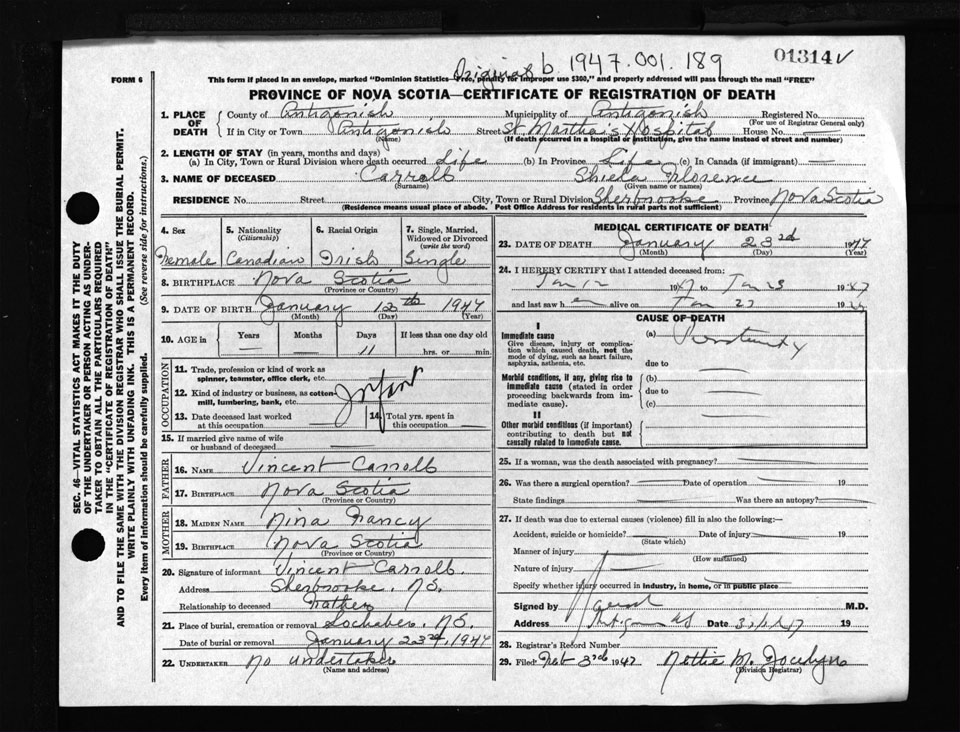 Original b 1947.001.189
01314
FORM 6
This form if placed in an envelope, marked "Dominion Statistics—Free, penalty for improper use $300," and properly addressed will pass through the mail "FREE"
PROVINCE OF NOVA SCOTIA—CERTIFICATE OF REGISTRATION OF DEATH
1. PLACE OF DEATH
County of Antigonish Municipality of Antigonish Registered No.
(For use of Registrar General only)
If in City or Town Antigonish Street St. Martha's Hospital House No. —
(Name) (If death occurred in a hospital or institution, give the name instead of street and number)
2. LENGTH OF STAY (in years, months and days)
(a) In City, Town or Rural Division where death occurred Life (b) In Province Life (c) In Canada (if immigrant) —
3. NAME OF DECEASED Carroll Shiela Florence
(Surname) (Given name or names)
RESIDENCE No. Street City, Town or Rural Division Sherbrooke Province Nova Scotia
(Residence means usual place of abode. Post Office Address for residents in rural parts not sufficient)
4. Sex Female
5. Nationality (Citizenship) Canadian
6. Racial Origin Irish
7. Single, Married, Widowed or Divorced (write the word) Single
8. BIRTHPLACE Nova Scotia
(Province or Country)
9. DATE OF BIRTH January 12th 1947
(Month) (Day) (Year)
10. AGE in Years Months Days If less than one day old
— — 11 hrs. or min.
OCCUPATION
11. Trade, profession or kind of work as spinner, teamster, office clerk, etc.
12. Kind of industry or business, as cotton-mill, lumbering, bank, etc.
Infant
13. Date deceased last worked at this occupation
14. Total yrs. spent in this occupation
15. If married give name of wife or husband of deceased
FATHER
16. NAME Vincent Carroll
17. BIRTHPLACE Nova Scotia
(Province or Country)
MOTHER
18. MAIDEN NAME Nina Nancy
19. BIRTHPLACE Nova Scotia
(Province or Country)
20. Signature of informant Vincent Carroll.
Address Sherbrooke, N.S.
Relationship to deceased Father
21. Place of burial, cremation or removal Lochaber, N.S.
Date of burial or removal January 23rd, 1947
22. UNDERTAKER No undertaker
(Name and Address)
MEDICAL CERTIFICATE OF DEATH
23. DATE OF DEATH January 23rd 1947
(Month) (Day) (Year)
24. I HEREBY CERTIFY that I attended deceased from:
Jan 12 1947 to Jan 23 1947
and last saw h er alive on Jan 23 19
CAUSE OF DEATH
I
Immediate cause
Give disease, injury or complication which caused death, not the mode of dying, such as heart failure, asphyxia, asthenia, etc.
(a) Prematurity
due to
Morbid conditions, if any, giving rise to immediate cause (stated in order proceeding backwards from immediate cause).
(b)
due to
(c)
II
Other morbid conditions (if important) contributing to death but not causally related to immediate cause.
25. If a woman, was the death associated with pregnancy?
26. Was there a surgical operation? Date of operation 19
State findings Was there an autopsy?
27. If death was due to external causes (violence) fill in also the following:—
Accident, suicide or homicide? Date of injury 19
(State which)
Manner of injury
(How sustained)
Nature of injury
Specify whether injury occurred in industry, in home, or in public place
Signed by M.D.
Address Antigonish NS Date 19
28. Registrar's Record Number
29. Filed Feb 3rd 1947 Nettie M. Jocelyn
(Division Registrar)
SEC. 46—VITAL STATISTICS ACT MAKES IT THE DUTY
OF THE UNDERTAKER OR PERSON ACTING AS UNDERTAKER TO OBTAIN ALL THE PARTICULARS REQUIRED
IN THE "CERTIFICATE OF REGISTRATION OF DEATH"
AND TO FILE THE SAME WITH THE DIVISION REGISTRAR WHO SHALL ISSUE THE BURIAL PERMIT.
WRITE PLAINLY WITH UNFADING INK. THIS IS A PERMANENT RECORD.
Every item of information should be carefully supplied. (See reverse side for instructions.)